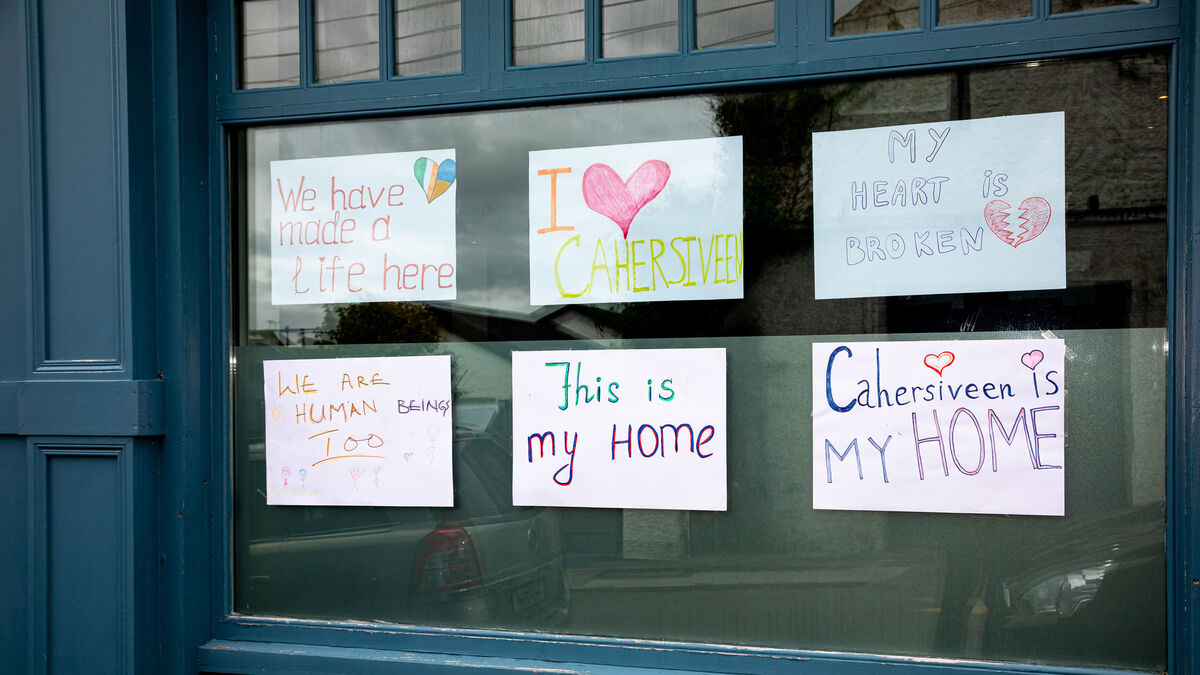 We have
made a
Life here
I
CAHERSIVEEN
MY
HEART is
BROKEN
WE ARE
HUMAN BEINGS
TOO
This is
my Home
Cahersiveen is
MY HOME